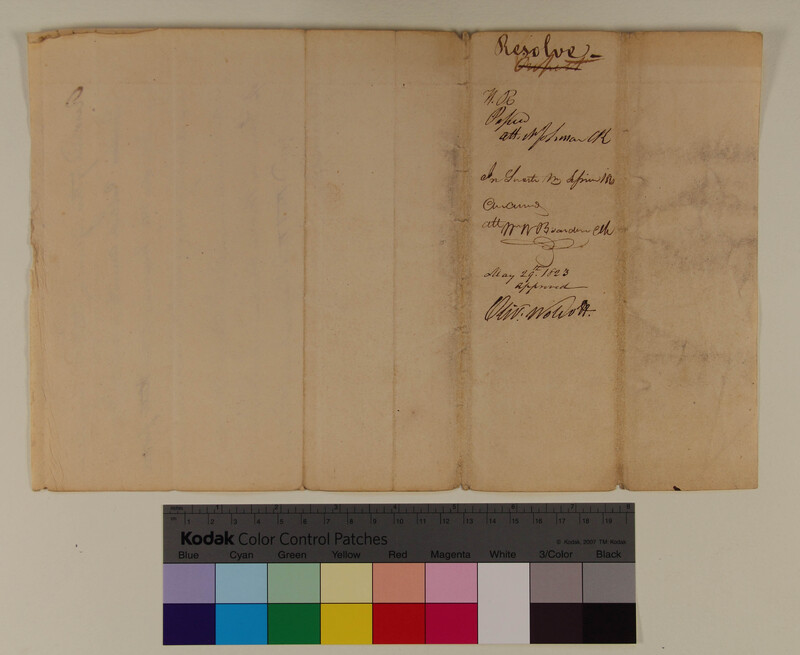 Resolve -
H. R
Passed
att. N Johnson Clk
In Senate
Concurred
att W W Boardman Clk
May 29th. 1823
approved
Oliv. Wolcott.
1 2 3 4 5 6 7 8
1 2 3 4 5 6 7 8 9 10 11 12 13 14 15 16 17 18 19
Kodak Color Control Patches
© Kodak, 2007 TM: Kodak
Blue Cyan Green Yellow Red Magenta White 3/Color Black